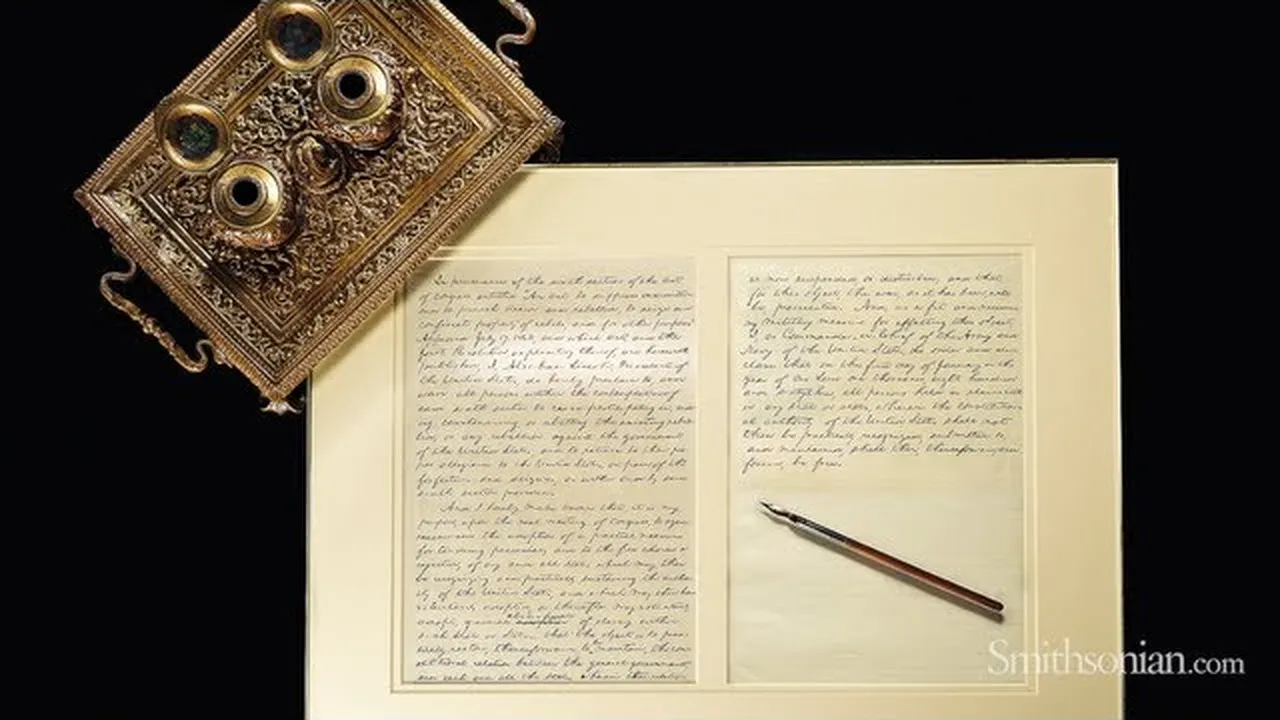 In pursuance of the sixth section of the act
of congress entitled "An act to suppress insurrection
and to punish treason and rebellion, to seize and
confiscate property of rebels, and for other purposes"
Approved July 17, 1862, and which act, and the
Joint Resolution explanatory thereof, are herewith
published, I, Abraham Lincoln, President of
the United States, do hereby proclaim to, and
warn all persons within the contemplation of
said sixth section to cease participating in, aid-
ing, countenancing, or abetting the existing rebel-
lion, or any rebellion against the government
of the United States, and to return to their pro-
per allegiance to the United States, on pain of the
forfeitures and seizures, as within and by said
sixth section provided.
And I hereby make known that it is my
purpose, upon the next meeting of congress, to again
recommend the adoption of a practical measure
for tendering pecuniary aid to the free choice or
rejection, of any and all States which may then
be recognizing and practically sustaining the author-
ity of the United States, and which may then have
voluntarily adopted, or thereafter may voluntarily
adopt, gradual abolishment of slavery within
such State or States—that the object is to prac-
tically restore, thenceforward to be maintained, the con-
stitutional relation between the general government,
and each, and all the states, wherein that relation
is now suspended, or disturbed; and that,
for this object, the war, as it has been, will
be, prosecuted. And, as a fit and necessa-
ry military measure for effecting this object,
I, as Commander-in-Chief of the Army and
Navy of the United States, do order and de-
clare that on the first day of January in the
year of Our Lord one thousand, eight hundred
and sixtythree, all persons held as slaves with-
in any state or states, wherein the constitution-
al authority of the United States shall not
then be practically recognized, submitted to,
and maintained, shall then, thenceforward, and
forever, be free.
Smithsonian.com